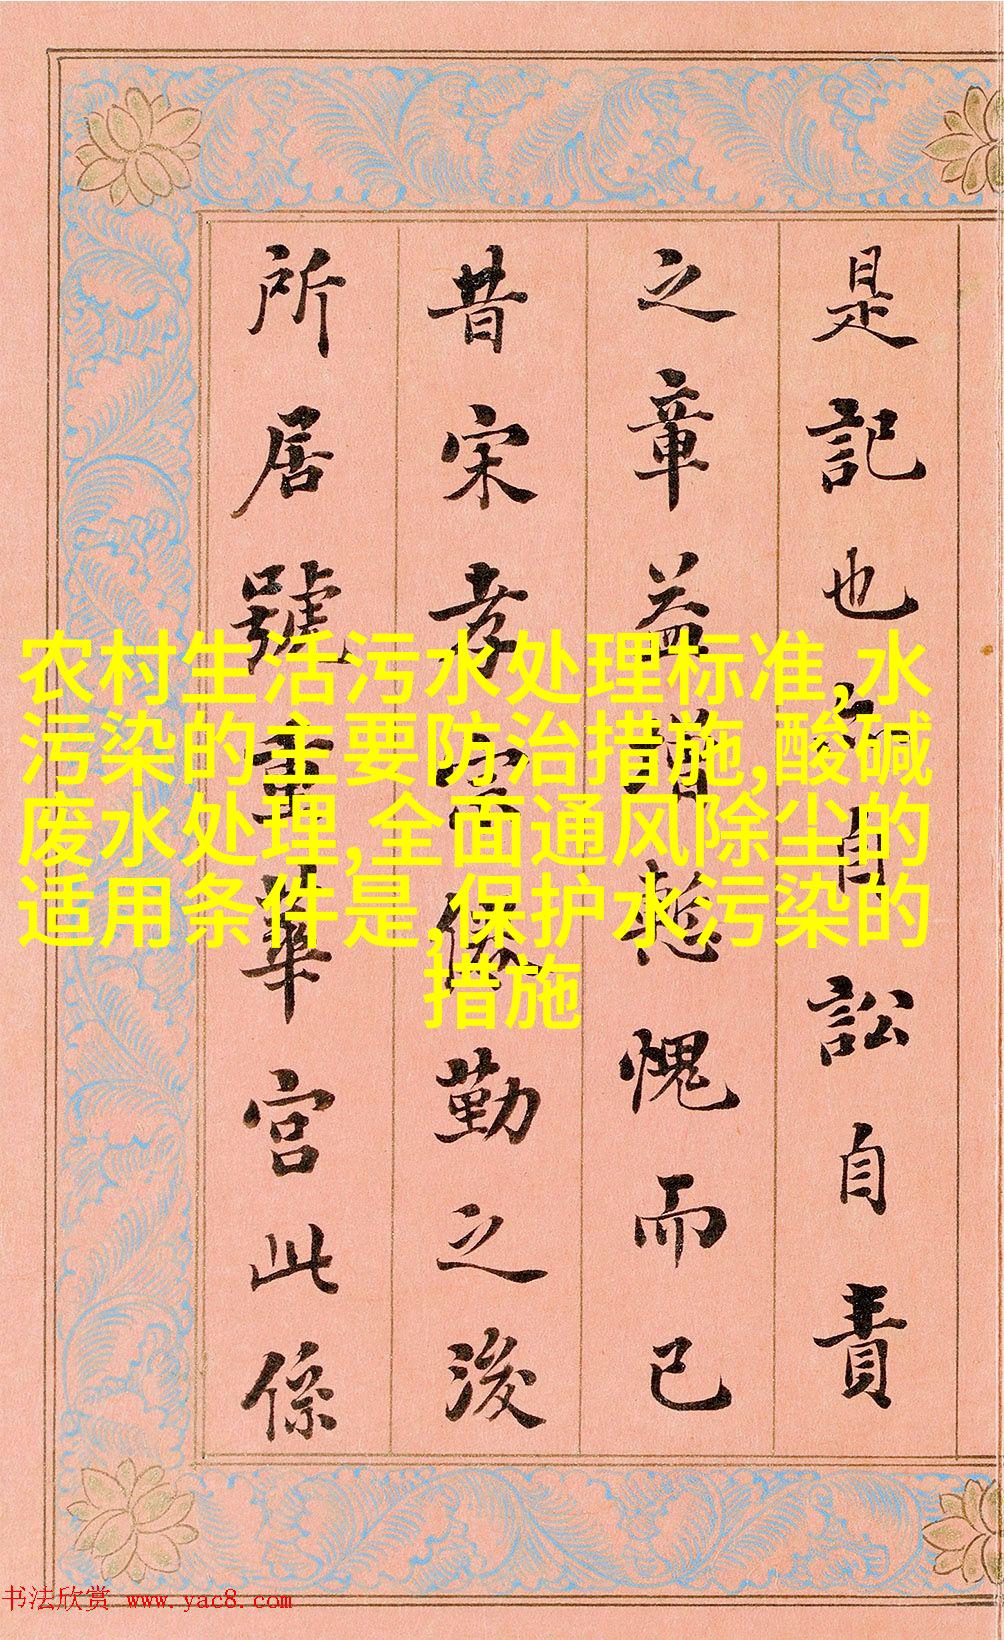 是記也亦自訟自責
之章益增慙愧而已
昔宋孝宗倦勤之後
所居號重華宮此係
农村生活污水处理标准,水
污染的主要防治措施,酸碱
废水处理,全面通风除尘的
适用条件是,保护水污染的
措施
书法欣赏 www.yac8.com